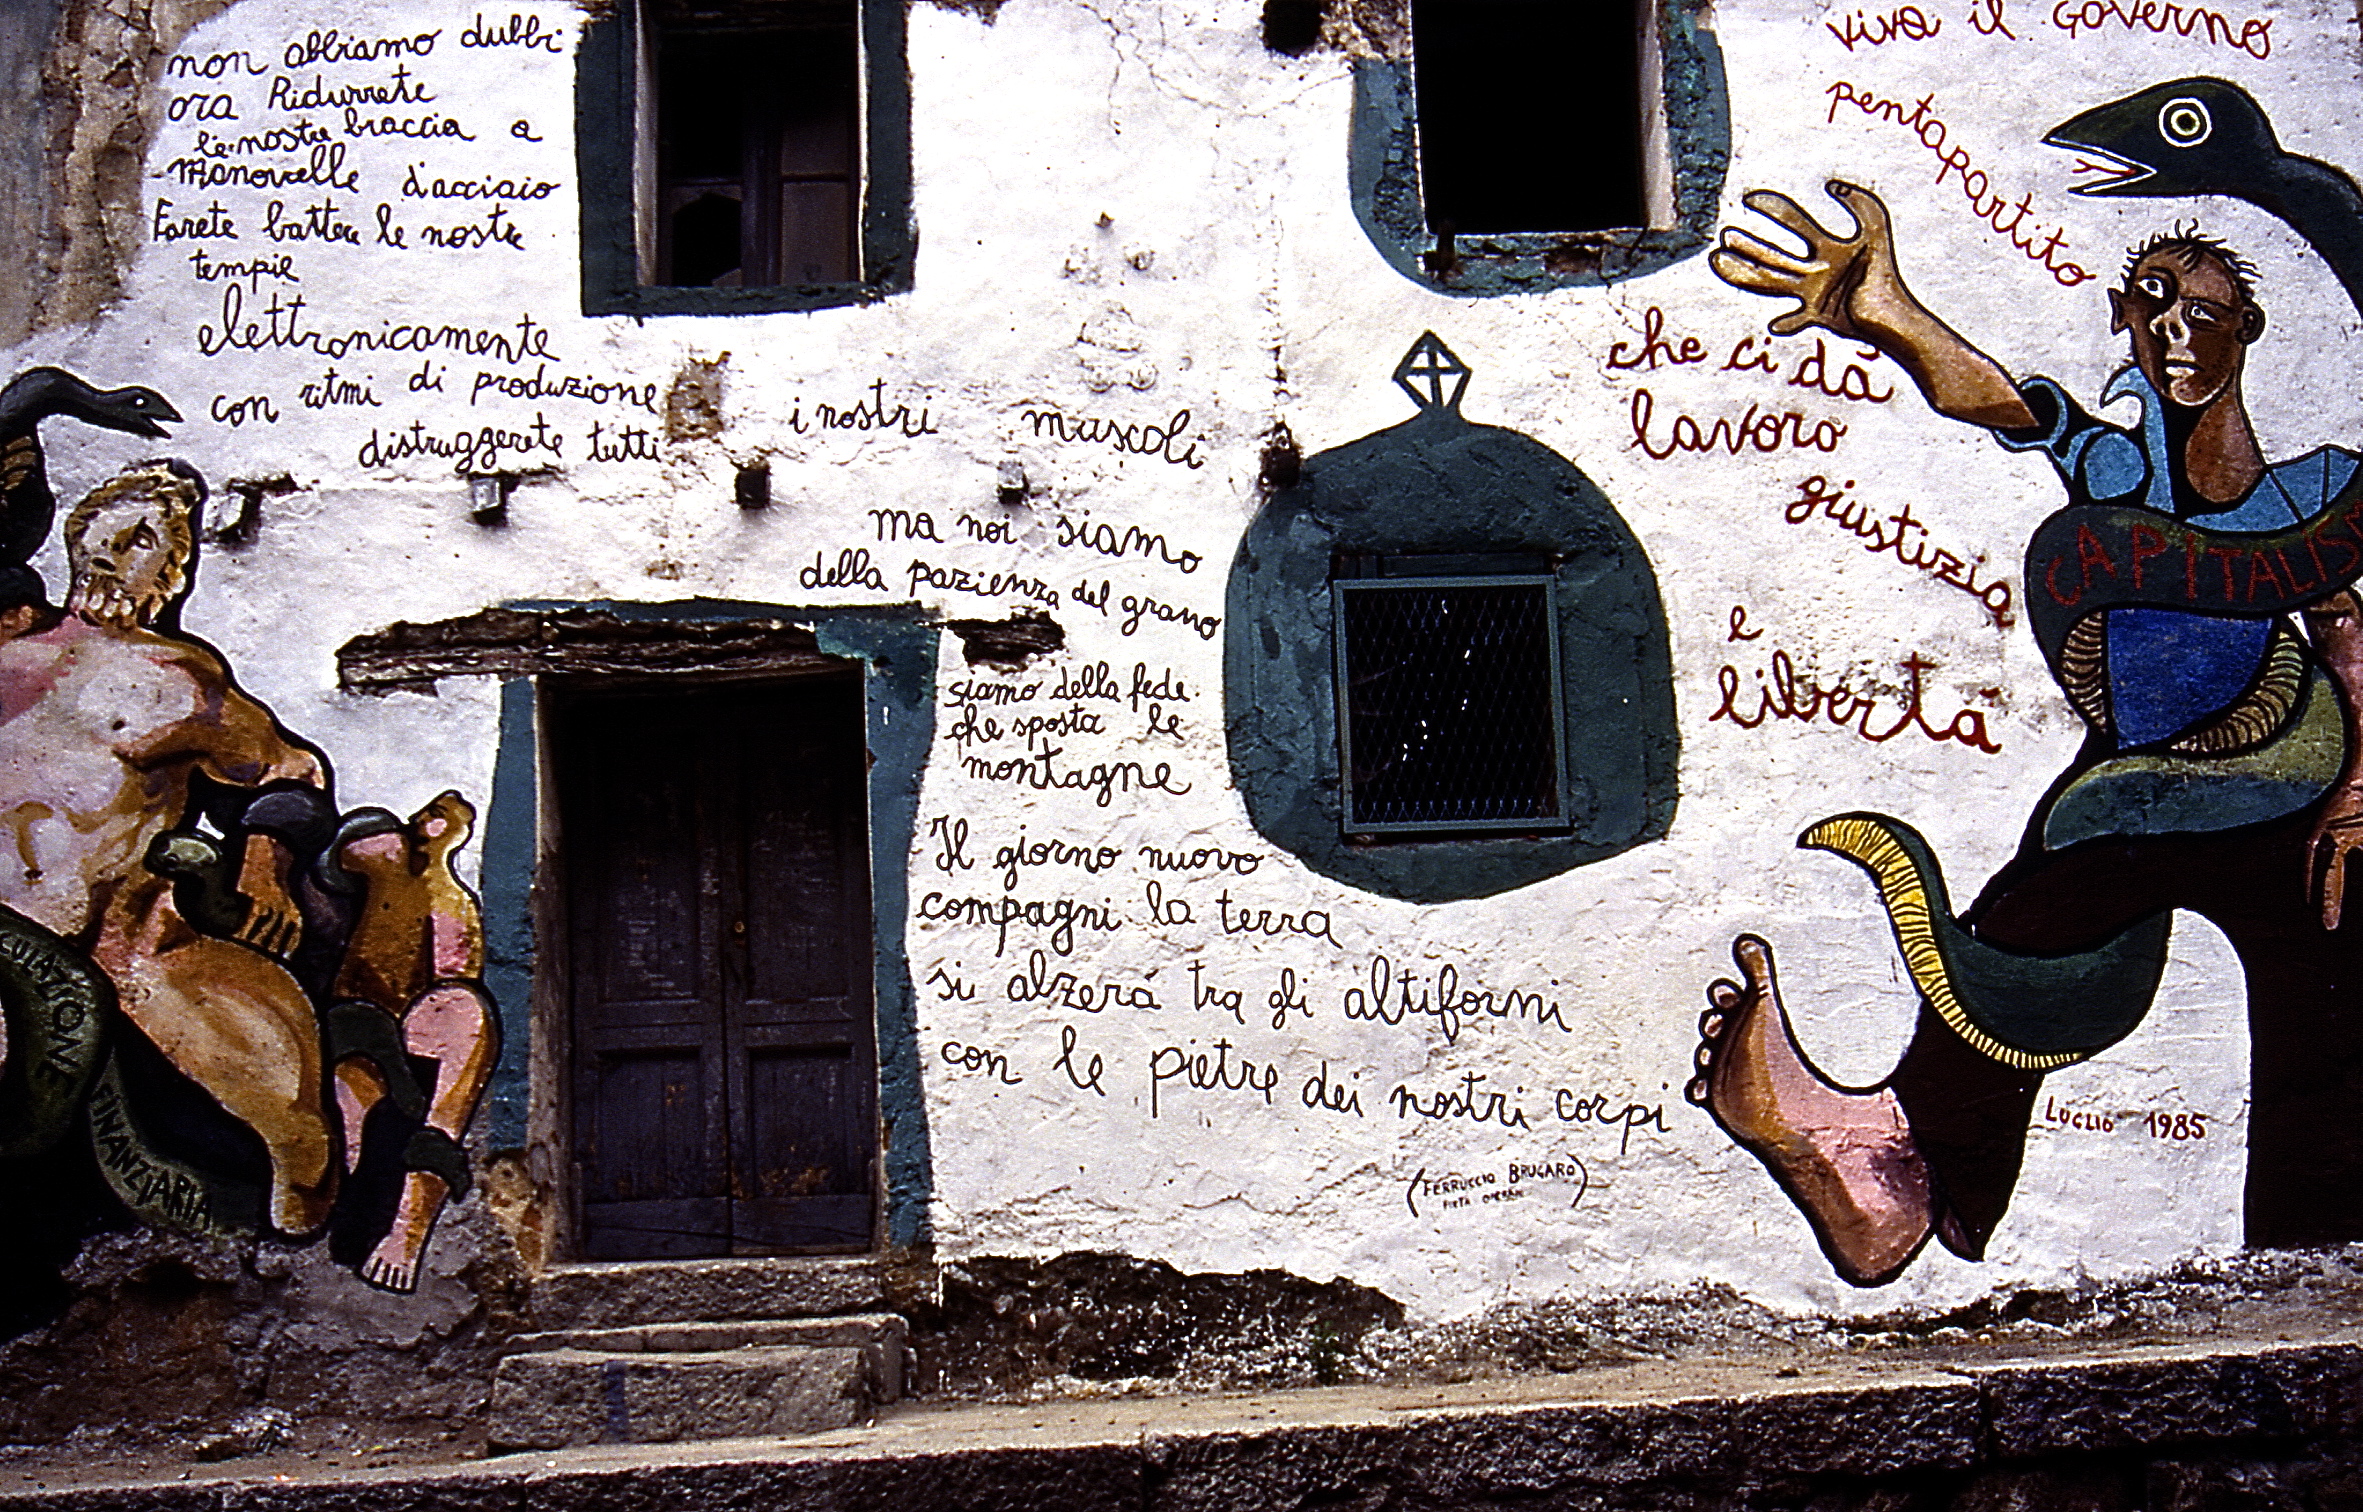 non abbiamo dubbi
ora Ridurrete
le nostre braccia a
Manovelle d'acciaio
Farete battere le nostre
tempie
elettronicamente
con ritmi di produzione
distruggerete tutti i nostri muscoli
ma noi siamo
della pazienza del grano
siamo della fede
che sposta le
montagne
Il giorno nuovo
compagni la terra
si alzerá tra gli altiforni
con le pietre dei nostri corpi
(FERRUCCIO BRUGARO)
viva il Governo
pentapartito
che ci dá
lavoro
giustizia
e
libertá
CAPITALIS
LUGLIO 1985
CULAZIONE
FINANZIARIA